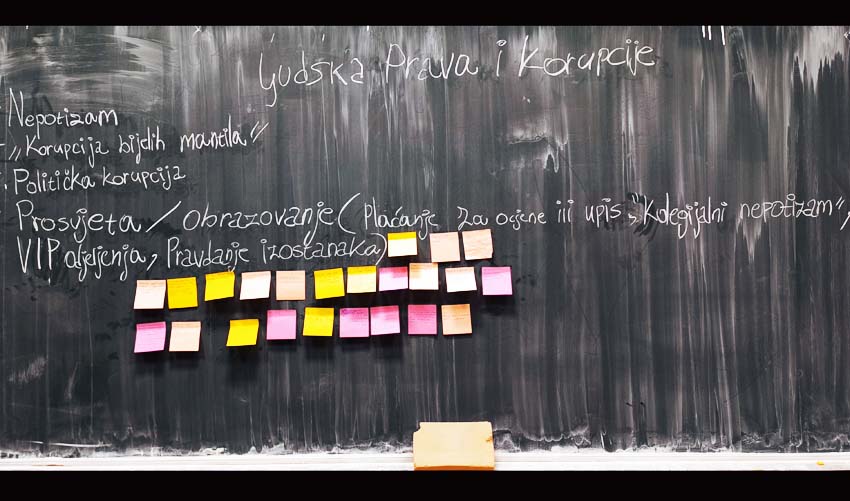 Ljudska Prava i Korupcije
Nepotizam
„Korupcija bijelih mantila"
Politička korupcija
Prosvjeta/obrazovanje (Plaćanje za ocjene ili upis, „Kolegijalni nepotizam",
VIP odjeljenja, Pravdanje izostanaka)